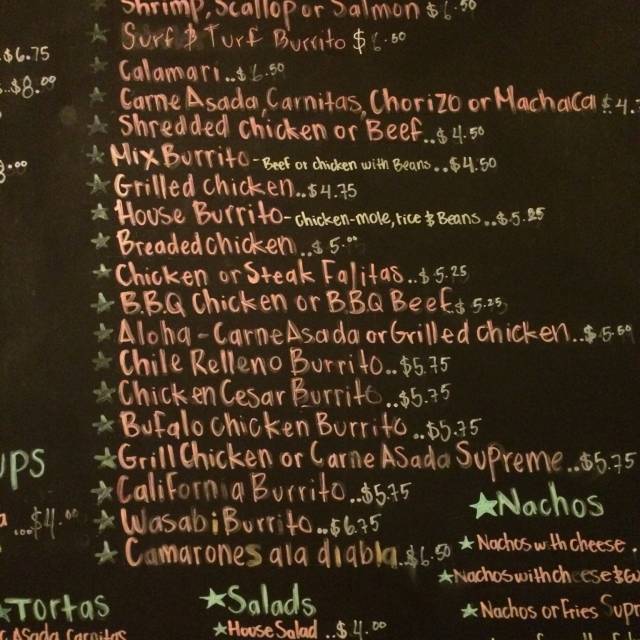 Shrimp, Scallop or Salmon $6.50
Surf & Turf Burrito $6.50
$6.75
Calamari..$6.50
..$8.00
Carne Asada, Carnitas, Chorizo or Machaca $4.
Shredded chicken or Beef..$4.50
Mix Burrito - Beef or chicken with Beans..$4.50
Grilled chicken..$4.75
House Burrito - chicken-mole, rice & Beans..$5.25
Breaded chicken..$5.00
Chicken or Steak Fajitas..$5.25
B.B.Q Chicken or B.B.Q Beef $5.25
Aloha - Carne Asada or Grilled chicken..$5.50
Chile Relleno Burrito..$5.75
Chicken Cesar Burrito..$5.75
Bufalo chicken Burrito..$5.75
Grill Chicken or Carne Asada Supreme..$5.75
ups
California Burrito..$5.75
Nachos
a ...$4.00
Wasabi Burrito..$6.75
Camarones ala diabla..$6.50
Nachos with cheese.
Nachos with cheese
Tortas
Salads
Nachos or Fries Supr
Asada, Carnitas
House Salad..$4.00